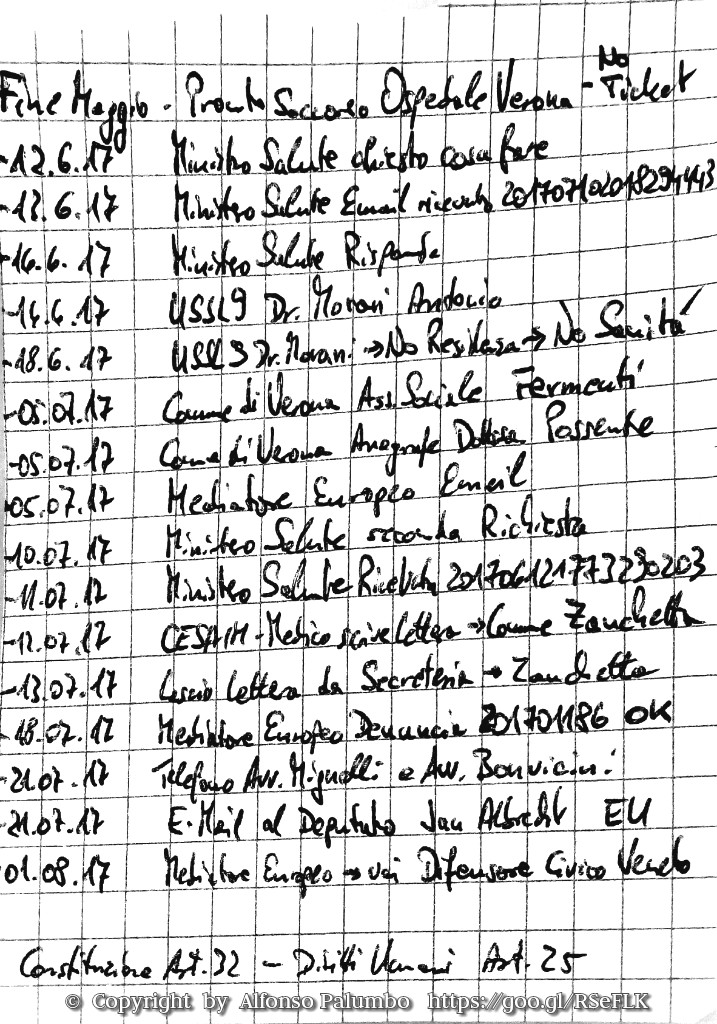 Fine Maggio - Pronto Soccorso Ospedale Verona - No Ticket
-12.6.17 Ministro Salute chiesto cosa fare
-13.6.17 Ministero Salute Email ricevuta 20170710201829443
-16.6.17 Ministero Salute Risponde
-16.6.17 USSL9 Dr. Morani Antonio
-18.6.17 USSL 9 Dr. Morani → No Residenza → No Sanitá
-05.07.17 Comune di Verona Ass. Sociale Fermenti
-05.07.17 Comune di Verona Anagrafe Dott.ssa Passente
-05.07.17 Mediatore Europeo Email
-10.07.17 Ministero Salute seconda Richiesta
-11.07.17 Ministero Salute Ricevuta
-12.07.17 CESAIM - Medico scrive lettera → Comune Zanchetta
-13.07.17 Lascio lettera da Secreteria → Zanchetta
-18.07.17 Mediatore Europeo Denuncia 201701186 OK
-21.07.17 Telefono Avv. Mignolli e Avv. Bonvicini
-21.07.17 E-Mail al Deputato Jan Albrecht EU
01.08.17 Mediatore Europeo → vai Difensore Civico Veneto
Constituzione Art. 32 - Diritti Umani Art. 25
© Copyright by Alfonso Palumbo https://goo.gl/RSeFLK